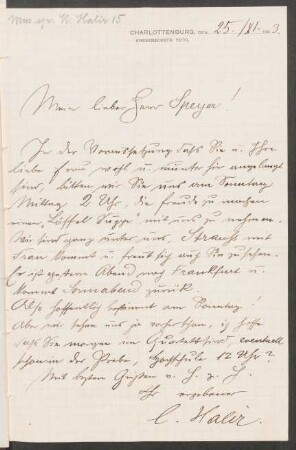 Mus. ep. K. Halir 15
CHARLOTTENBURG, DEN 25./XI. 3.
Mein lieber Herr Speyer!
In der Voraussetzung daß Sie u. Ihre
liebe Frau wohl u. munter hier angelangt
sind, bitten wir Sie uns am Sonntag
Mittag 2 Uhr, die Freude zu machen
einen „Löffel Suppe" mit uns zu nehmen.
Wir sind ganz unter uns, Strauss mit
Frau kommt u. freut sich auf Sie zu sehen.
Er ist gestern Abend nach Frankfurt u.
kommt Sonnabend zurück.
Also hoffentlich bestimmt am Sonntag!
Aber wir sehen uns ja vorher schon, ich hoffe
daß Sie morgen im Quartett sind, eventuell
schon in der Probe, Hochschule 12 Uhr?
Mit besten Grüßen v. H. z. H.
Ihr ergebener
C. Halir.